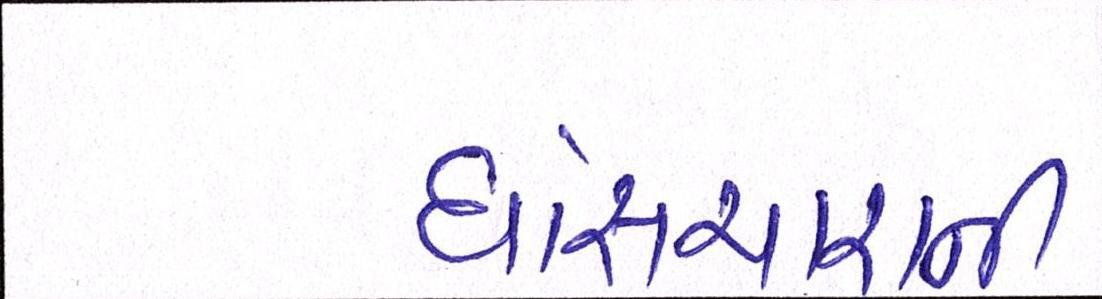 ઘાંસચારાની